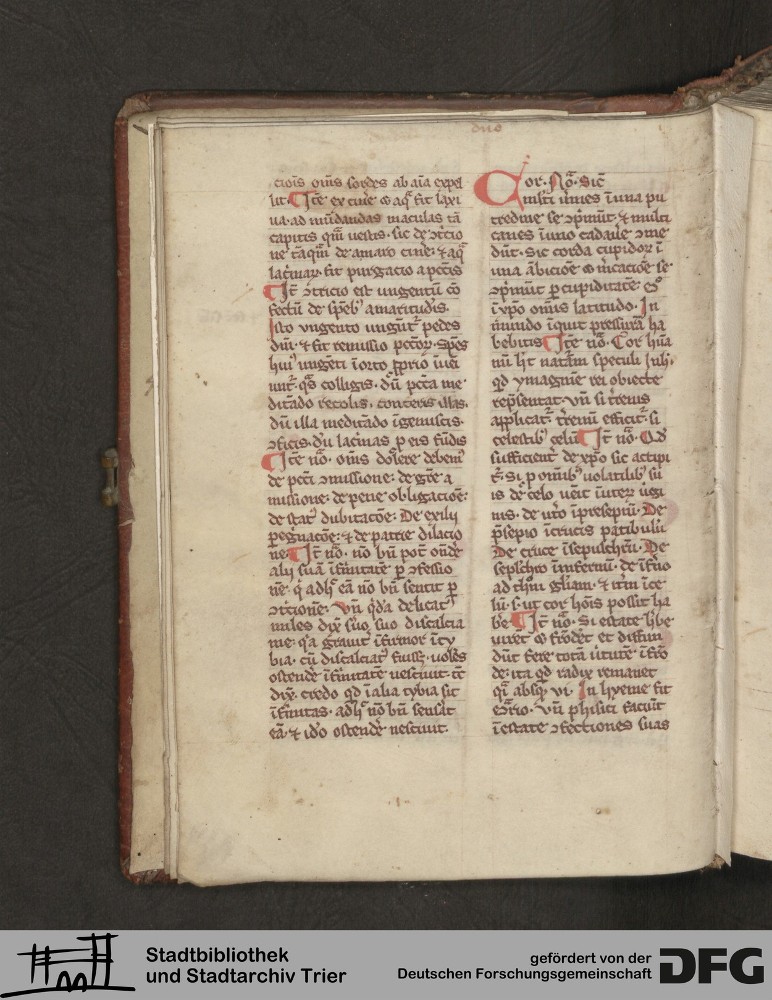 duo
ciois om̄s sordes ab aīa expel
lit. Itē ex cine� ⁊ aq̄ fit laxi
ua. ad mūdandas maculas tā
capitis qm̄ uestis. sic de ꝯt̄cio
ne tāq̄m de amaro cinē. ⁊ aq̄
lac̄mar. fit purgacio a pctīs
It̄ ꝯtricio est ungentū cō
fectū de sp̄eb᷒ amaritudīs.
Isto vngento vngūt᷒ pedes
dnī. ⁊ fit remissio pctōr. Spēs
hui᷒ ungēti ī orto ꝓprio īueī
unt᷒. q̄s colligis. dū pctā me
ditādo recolis. conteris illas.
dū illa meditādo īgemiscis.
ꝯficis. dū lac̄mas ꝑ eis fūdis
Itē nō. om̄s dolere debem᷒
de pctī ꝯmissione: de grē a
missione: de pene obligacioē:
de stat᷒ dubitacōe: De exilii
ꝑeg̅nacōe: ⁊ de patrie dilacio
ne. It̄ nō. nō bn̄ pot̄ ondē
alij suā īfīrmitatē ꝑ ꝯfessio
nē. q̄ adh᷒ eā nō bn̄ sentit ꝑ
ꝯt̄cionē. Vn̄ q̄dā delicat᷒
miles dix̄ suo discalcia
me. q̄a grauit᷒ īfirmor ī ty
bia. cū discalciat᷒ fuiss. uolēs
ostendē īfirmitatē nesciuit. tc̄
dix̄. credo qd̄ ī alia tybia sit
īfirmitas. adh᷒ nō bn̄ sensāt
eā. ⁊ idō ostendē nesciuit.
Cor. Nō. Sic
multi um̄es ī una pu
tredine se ꝯp̄mūt. ⁊ multi
canes ī uno cadaūe ꝯme
dūt. Sic corda cupidor ī
una ābiciōe se
ꝯp̄munt ꝑ cupiditatē
ī xp̄o om̄is latitudo. In
mundo īquit pressurā ha
bebitis. Itē nō. Cor hūa
nū ht̄ natām speculi
qd̄ ymaginē rei obiecte
rep̄sentat. vn̄ si t̄renis
applicat᷒. t̄renū efficit᷒. si
celestib᷒ celū. It̄ nō.
sufficient᷒ de xp̄o sic accipi
t᷒. Si p om̄ib᷒ uolatilib᷒ sū
is de celo ueīt ī uterū ūgi
nis. de utō ī presepiū. De
p̄sepio ī crucis patibulū
De cruce ī sepulchrū. De
sepl̄chro ī infernū. de īfrno
ad thni gl̄iam. ⁊ itm̄ ī ce
lū. s. ut cor hōis possit ha
be. It̄ nō. Si estate hbe
uiret ⁊ frōdēt et diffun
dūt fere totā ū̄tutē ī frō
de. ita qd̄ radix remanet
q̄i absq̨ vi. In hyeme fit
ꝯt̄rio. Vn̄ phisici faciūt
ī estate ꝯfectiones suas
Stadtbibliothek
und Stadtarchiv Trier
gefördert von der
Deutschen Forschungsgemeinschaft DFG